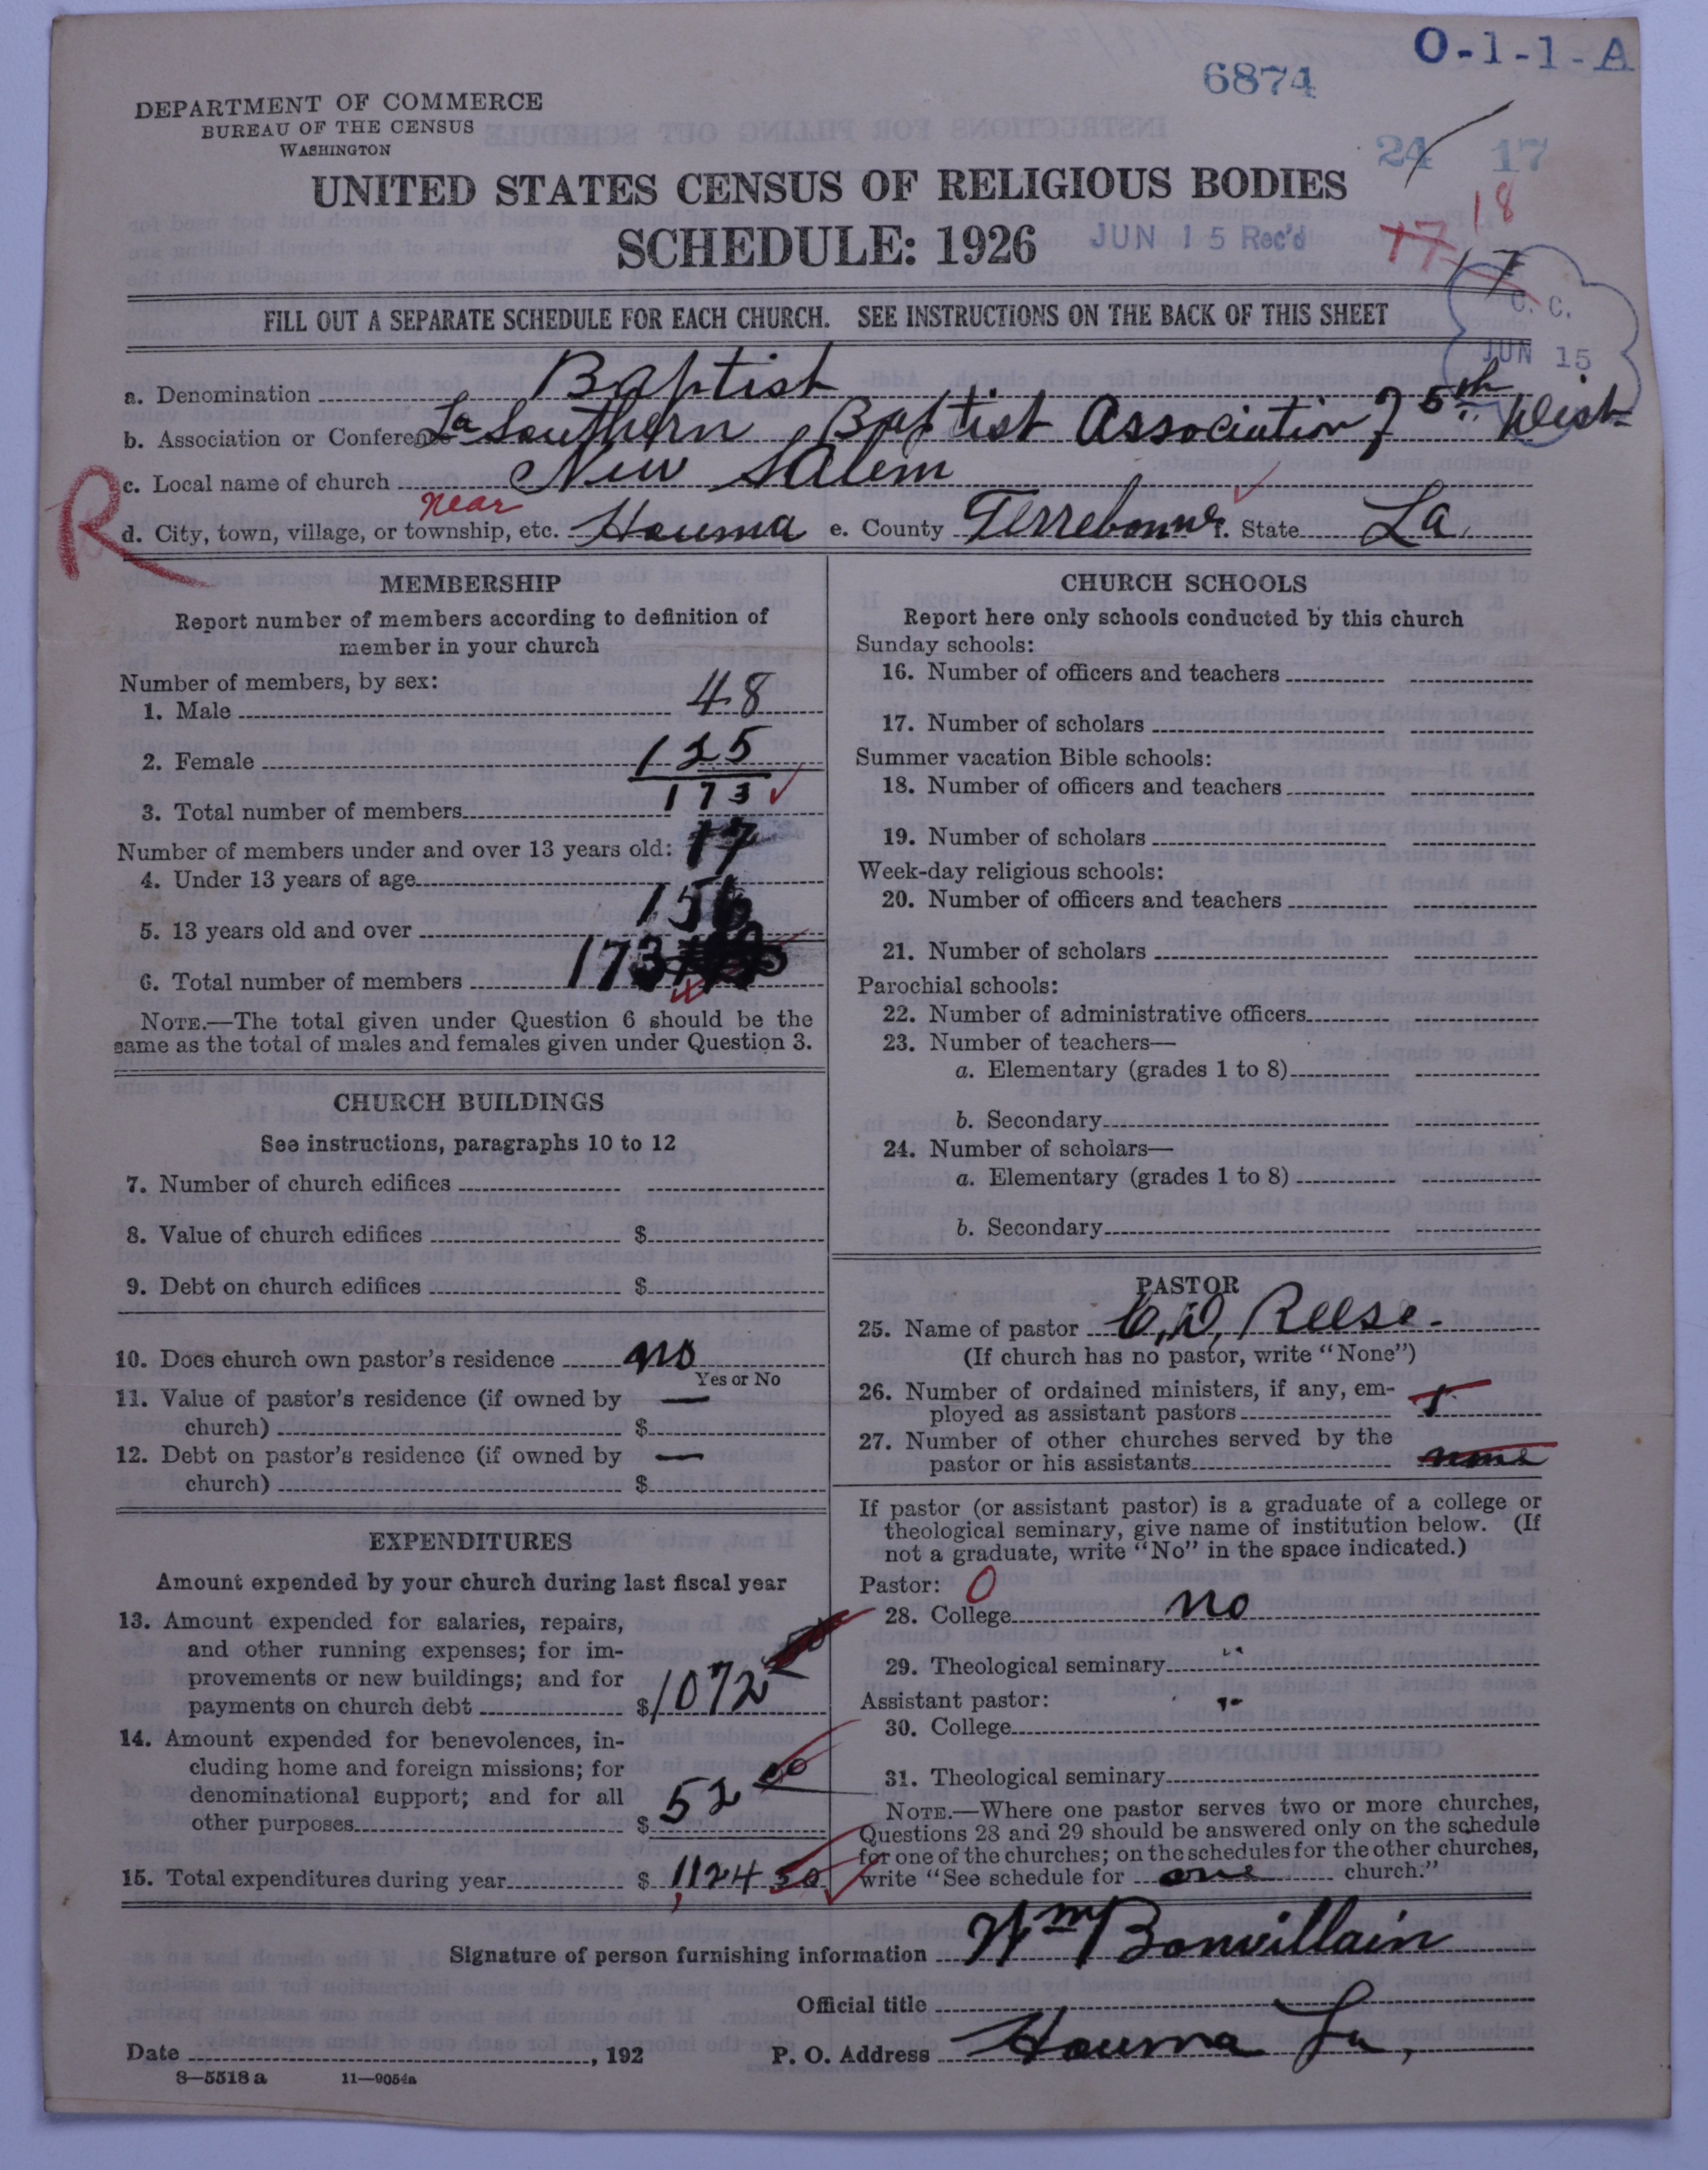 O-1-1-A
6874
DEPARTMENT OF COMMERCE
BUREAU OF THE CENSUS
WASHINGTON
24 17
UNITED STATES CENSUS OF RELIGIOUS BODIES
18
SCHEDULE: 1926 JUN 15 Rec'd
17 17
C. C.
JUN 15
FILL OUT A SEPARATE SCHEDULE FOR EACH CHURCH. SEE INSTRUCTIONS ON THE BACK OF THIS SHEET
a. Denomination Baptist
b. Association or Conference La Southern Baptist Association 7 5th Dist
c. Local name of church New Salem
R near
d. City, town, village, or township, etc. Houma e. County Terrebonne f. State La.
MEMBERSHIP
Report number of members according to definition of
member in your church
Number of members, by sex:
1. Male 48
2. Female 125
3. Total number of members 173
Number of members under and over 13 years old:
4. Under 13 years of age 17
5. 13 years old and over 156
6. Total number of members 173
NOTE.—The total given under Question 6 should be the
same as the total of males and females given under Question 3.
CHURCH BUILDINGS
See instructions, paragraphs 10 to 12
7. Number of church edifices
8. Value of church edifices $
9. Debt on church edifices $
10. Does church own pastor's residence no
Yes or No
11. Value of pastor's residence (if owned by
church) $ —
12. Debt on pastor's residence (if owned by
church) $ —
EXPENDITURES
Amount expended by your church during last fiscal year
13. Amount expended for salaries, repairs,
and other running expenses; for im-
provements or new buildings; and for
payments on church debt $ 1072
14. Amount expended for benevolences, in-
cluding home and foreign missions; for
denominational support; and for all
other purposes $ 52 00
15. Total expenditures during year $ 1,124 50
CHURCH SCHOOLS
Report here only schools conducted by this church
Sunday schools:
16. Number of officers and teachers
17. Number of scholars
Summer vacation Bible schools:
18. Number of officers and teachers
19. Number of scholars
Week-day religious schools:
20. Number of officers and teachers
21. Number of scholars
Parochial schools:
22. Number of administrative officers
23. Number of teachers—
a. Elementary (grades 1 to 8)
b. Secondary
24. Number of scholars—
a. Elementary (grades 1 to 8)
b. Secondary
PASTOR
25. Name of pastor C. D. Reese.
(If church has no pastor, write "None")
26. Number of ordained ministers, if any, em-
ployed as assistant pastors
27. Number of other churches served by the
pastor or his assistants none
If pastor (or assistant pastor) is a graduate of a college or
theological seminary, give name of institution below. (If
not a graduate, write "No" in the space indicated.)
Pastor: 0
28. College no
29. Theological seminary "
Assistant pastor: "
30. College
31. Theological seminary
NOTE.—Where one pastor serves two or more churches,
Questions 28 and 29 should be answered only on the schedule
for one of the churches; on the schedules for the other churches,
write "See schedule for one church."
Signature of person furnishing information Wm Bonvillain
Official title
Date , 192 P. O. Address Houma La,
8—5518 a 11—9054a